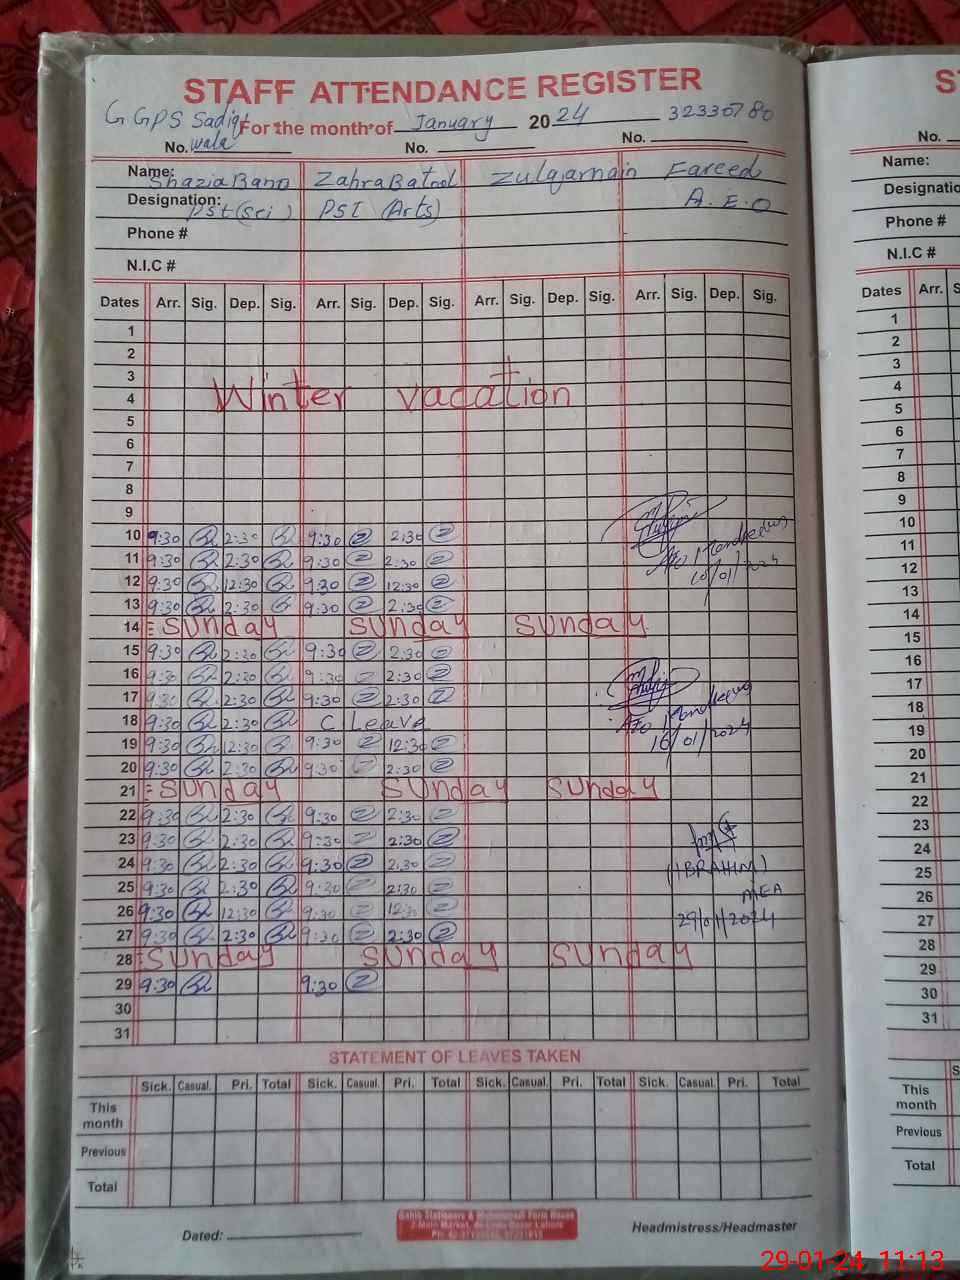 STAFF ATTENDANCE REGISTER
G GPS Sadiq wala
For the month of January 2024 32330780
No. No. No.
Name: Shazia Bano Zahra Batool Zulqarnain Fareed
Designation: Pst (Sci) PST (Arts) A.E.O
Phone #
N.I.C #
Dates Arr. Sig. Dep. Sig. Arr. Sig. Dep. Sig. Arr. Sig. Dep. Sig. Arr. Sig. Dep. Sig.
1
2
3
Winter vacation
4
5
6
7
8
9
10 9:30 2:30 9:30 2:30
11 9:30 2:30 9:30 2:30
12 9:30 12:30 9:30 12:30
10/01/2024
13 9:30 2:30 9:30 2:30
14 Sunday Sunday Sunday
15 9:30 2:30 9:30 2:30
16 9:30 2:30 9:30 2:30
17 9:30 2:30 9:30 2:30
18 9:30 2:30 C. Leave
19 9:30 12:30 9:30 12:30
16/01/2024
20 9:30 2:30 9:30 2:30
21 Sunday Sunday Sunday
22 9:30 2:30 9:30 2:30
23 9:30 2:30 9:30 2:30
24 9:30 2:30 9:30 2:30
(IBRAHIM)
25 9:30 2:30 9:30 2:30
MEA
26 9:30 12:30 9:30 12:30
29/01/2024
27 9:30 2:30 9:30 2:30
28 Sunday Sunday Sunday
29 9:30 9:30
30
31
STATEMENT OF LEAVES TAKEN
Sick. Casual. Pri. Total Sick. Casual. Pri. Total Sick. Casual. Pri. Total Sick. Casual. Pri. Total
This month
Previous
Total
Dated:
Headmistress/Headmaster
No.
Name:
Designatio
Phone #
N.I.C #
Dates Arr.
1
2
3
4
5
6
7
8
9
10
11
12
13
14
15
16
17
18
19
20
21
22
23
24
25
26
27
28
29
30
31
This month
Previous
Total
29-01-24 11:13